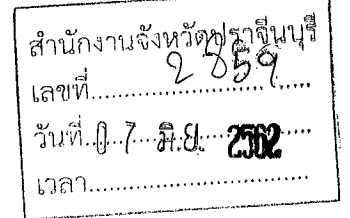 สำนักงานจังหวัดปราจีนบุรี
เลขที่ 2859
วันที่ 07 มิ.ย. 2562
เวลา